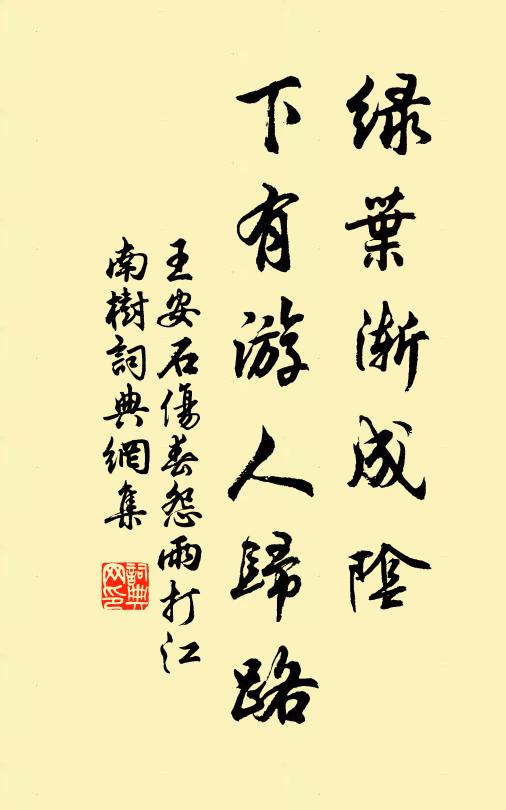 绿葉渐成陰
下有游人歸路
王安石傷春怨雨打江
南樹詞典網集
詞典
网印